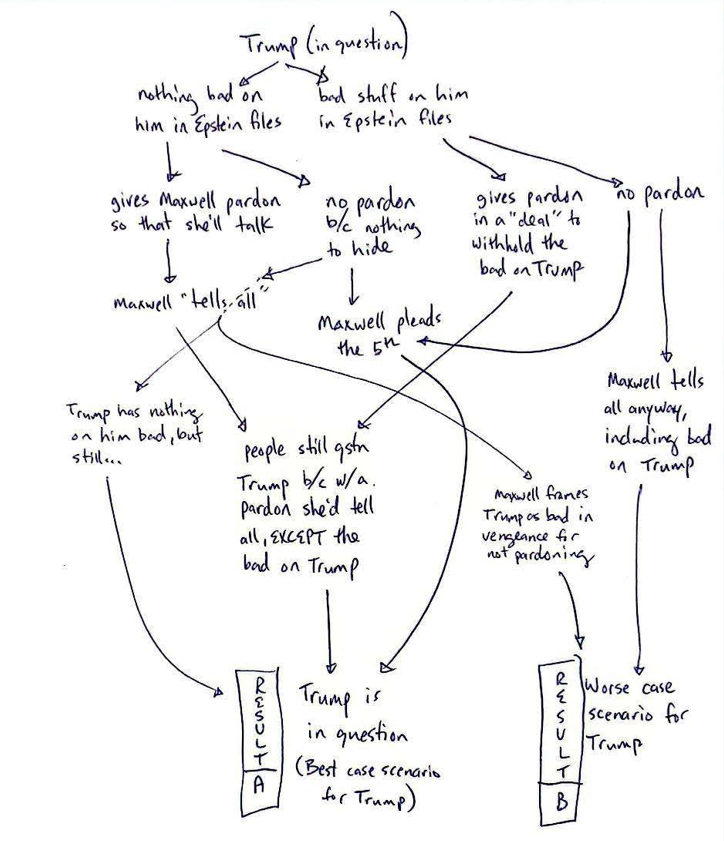 Trump (in question)
nothing bad on
him in Epstein files
bad stuff on him
in Epstein files
gives Maxwell pardon
so that she'll talk
no pardon
b/c nothing
to hide
gives pardon
in a "deal" to
withhold the
bad on Trump
no pardon
Maxwell "tells all"
Maxwell pleads
the 5th
Trump has nothing
on him bad, but
still...
people still qstn
Trump b/c w/a.
pardon she'd tell
all, EXCEPT the
bad on Trump
Maxwell tells
all anyway,
including bad
on Trump
Maxwell frames
Trump as bad in
vengeance for
not pardoning
RESULT
A
Trump is
in question
(Best case scenario
for Trump)
RESULT
B
Worse case
scenario for
Trump